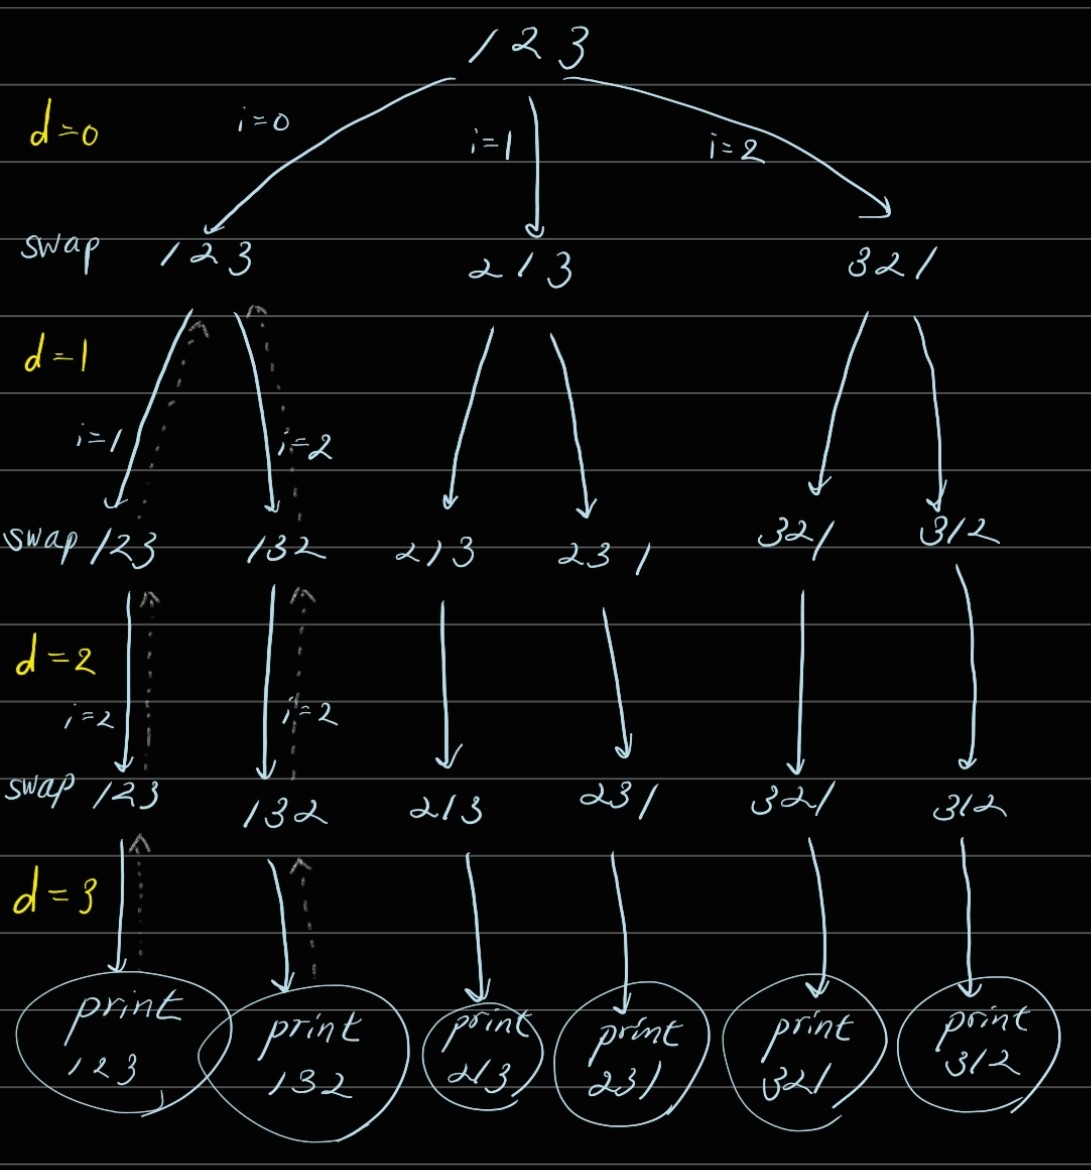 1 2 3
d=0
i=0
i=1
i=2
swap 123 213 321
d=1
i=1
i=2
swap 123 132 213 231 321 312
d=2
i=2
i=2
swap 123 132 213 231 321 312
d=3
print
123
print
132
print
213
print
231
print
321
print
312